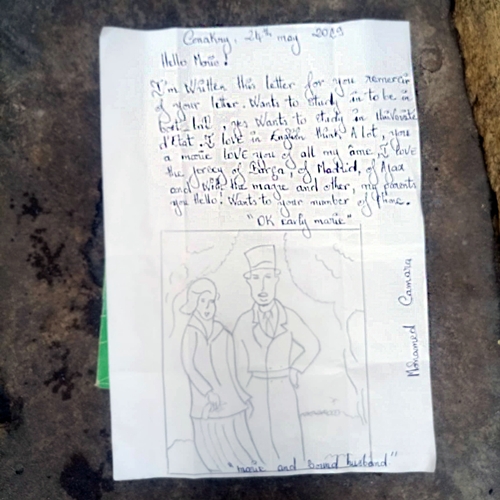 Conakry, 24th may 2029
Hello Marie!
I'm Written this letter for you remercir
of your letter. Wants to study in to be in
bort, yes Wants to study in Université
d'Etat. I love in English think A lot, you
a marie love you of all my âme, I love
the jersey of Barça, of Madrid, of Ajax
and Wide the magie and other, my parents
you Hello! Wants to your number of Phone.
"OK Early marie"
Mohamed Camara
"marie and husband"